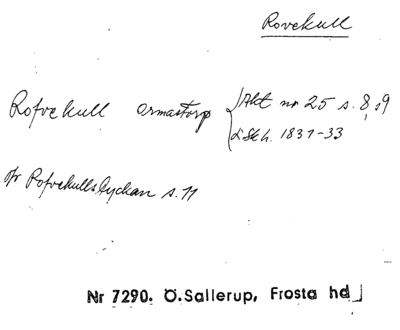 Rovekull
Rofvekull Ormastorp Akt nr 25 s. 8, s 9
L.Sk.h. 1831-33
Rofvekullslyckan s. 11
Nr 7290. Ö.Sallerup, Frosta hd